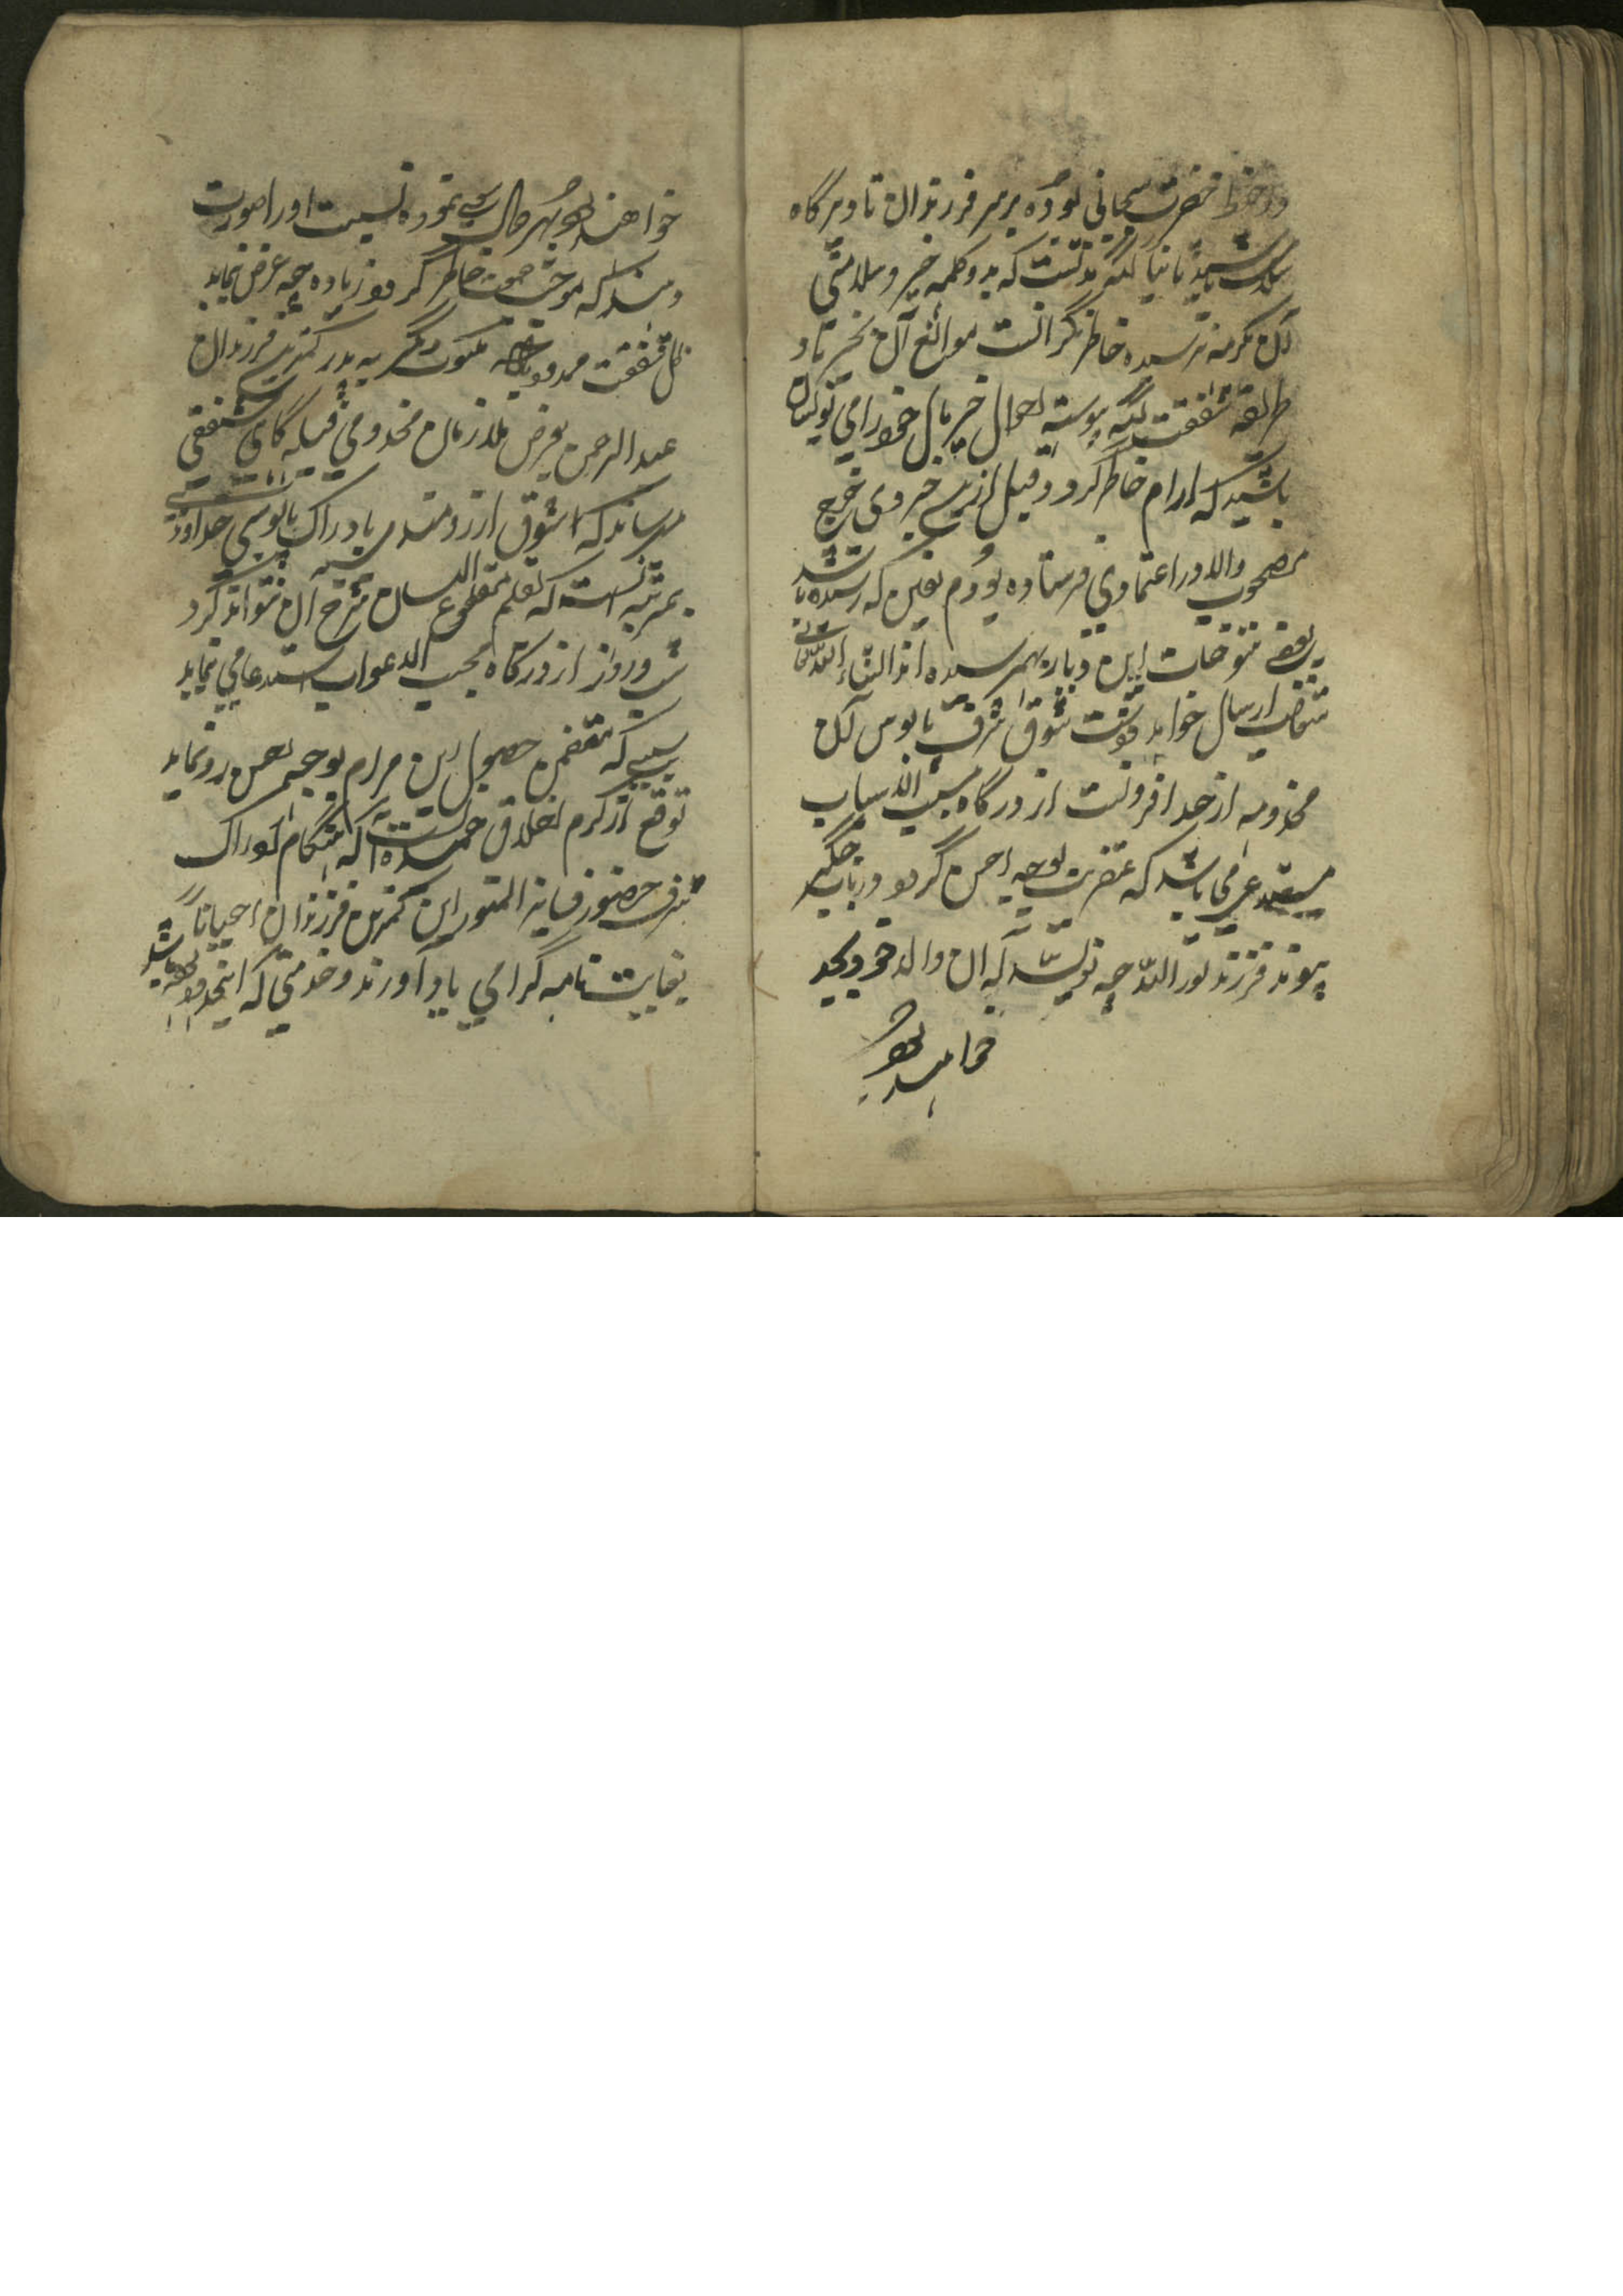 در حفظ حضرت سبحانی بوده بر سر فرزندان تا دیرگاه
سلامت باشید تا نیا لکه گذشت که بدو کلمه خیر و سلامتی
آن مکرمه نرسیده خاطر نگرانست موانع آن بخیر باد
طریقه شفقت آنکه پیوسته احوال خیر مآل خود را می نویسان
باشید که آرام خاطر گردد و قبل ازین خبروی خرج
مصحوب والا در اعتمادی فرستاده بودم یقین که رسیده باشد
بعضی تنوخات این دیار بهم رسیده انشاء الله تعالی
متعاقب ارسال خواهد داشت شوق شرف پابوس آن
مخدومه از حد افزونست از درگاه مسبب الاسباب
مستدعی می باشد که عنقریب بوجه احسن گردد در باب جگر
پیوند فرزند نور الله چه نویسد که آن والد خود بجد
خواهند بود
خواهند بود بهر حال سعی نموده نسبت او را صورت
دهند که موجب جمعیت خاطر گردد زیاده چه عرض نماید
ظل شفقت ممدود باد مکتوب دیگر به پدر کمترین فرزندان
عبد الرحمن بعرض ملازمان مخدومی قبله گاهی مشفقی
میرساند که شوق آرزومندی بادراک پابوسی خداوند
بمرتبه ایست که بقلم مقطوع اللسان شرح آن نتواند کرد
شب و روز از درگاه مجیب الدعوات استدعا می نماید
سببی که متضمن حصول این مرام بوجه احسن رو نماید
توقع از کرم اخلاق حمیده آنست که تا هنگام ادراک
شرف حضور فایز النور این کمترین فرزندان احیاناً
بعنایت نامه گرامی یاد آورند و خدمتی که اینحدود باشد